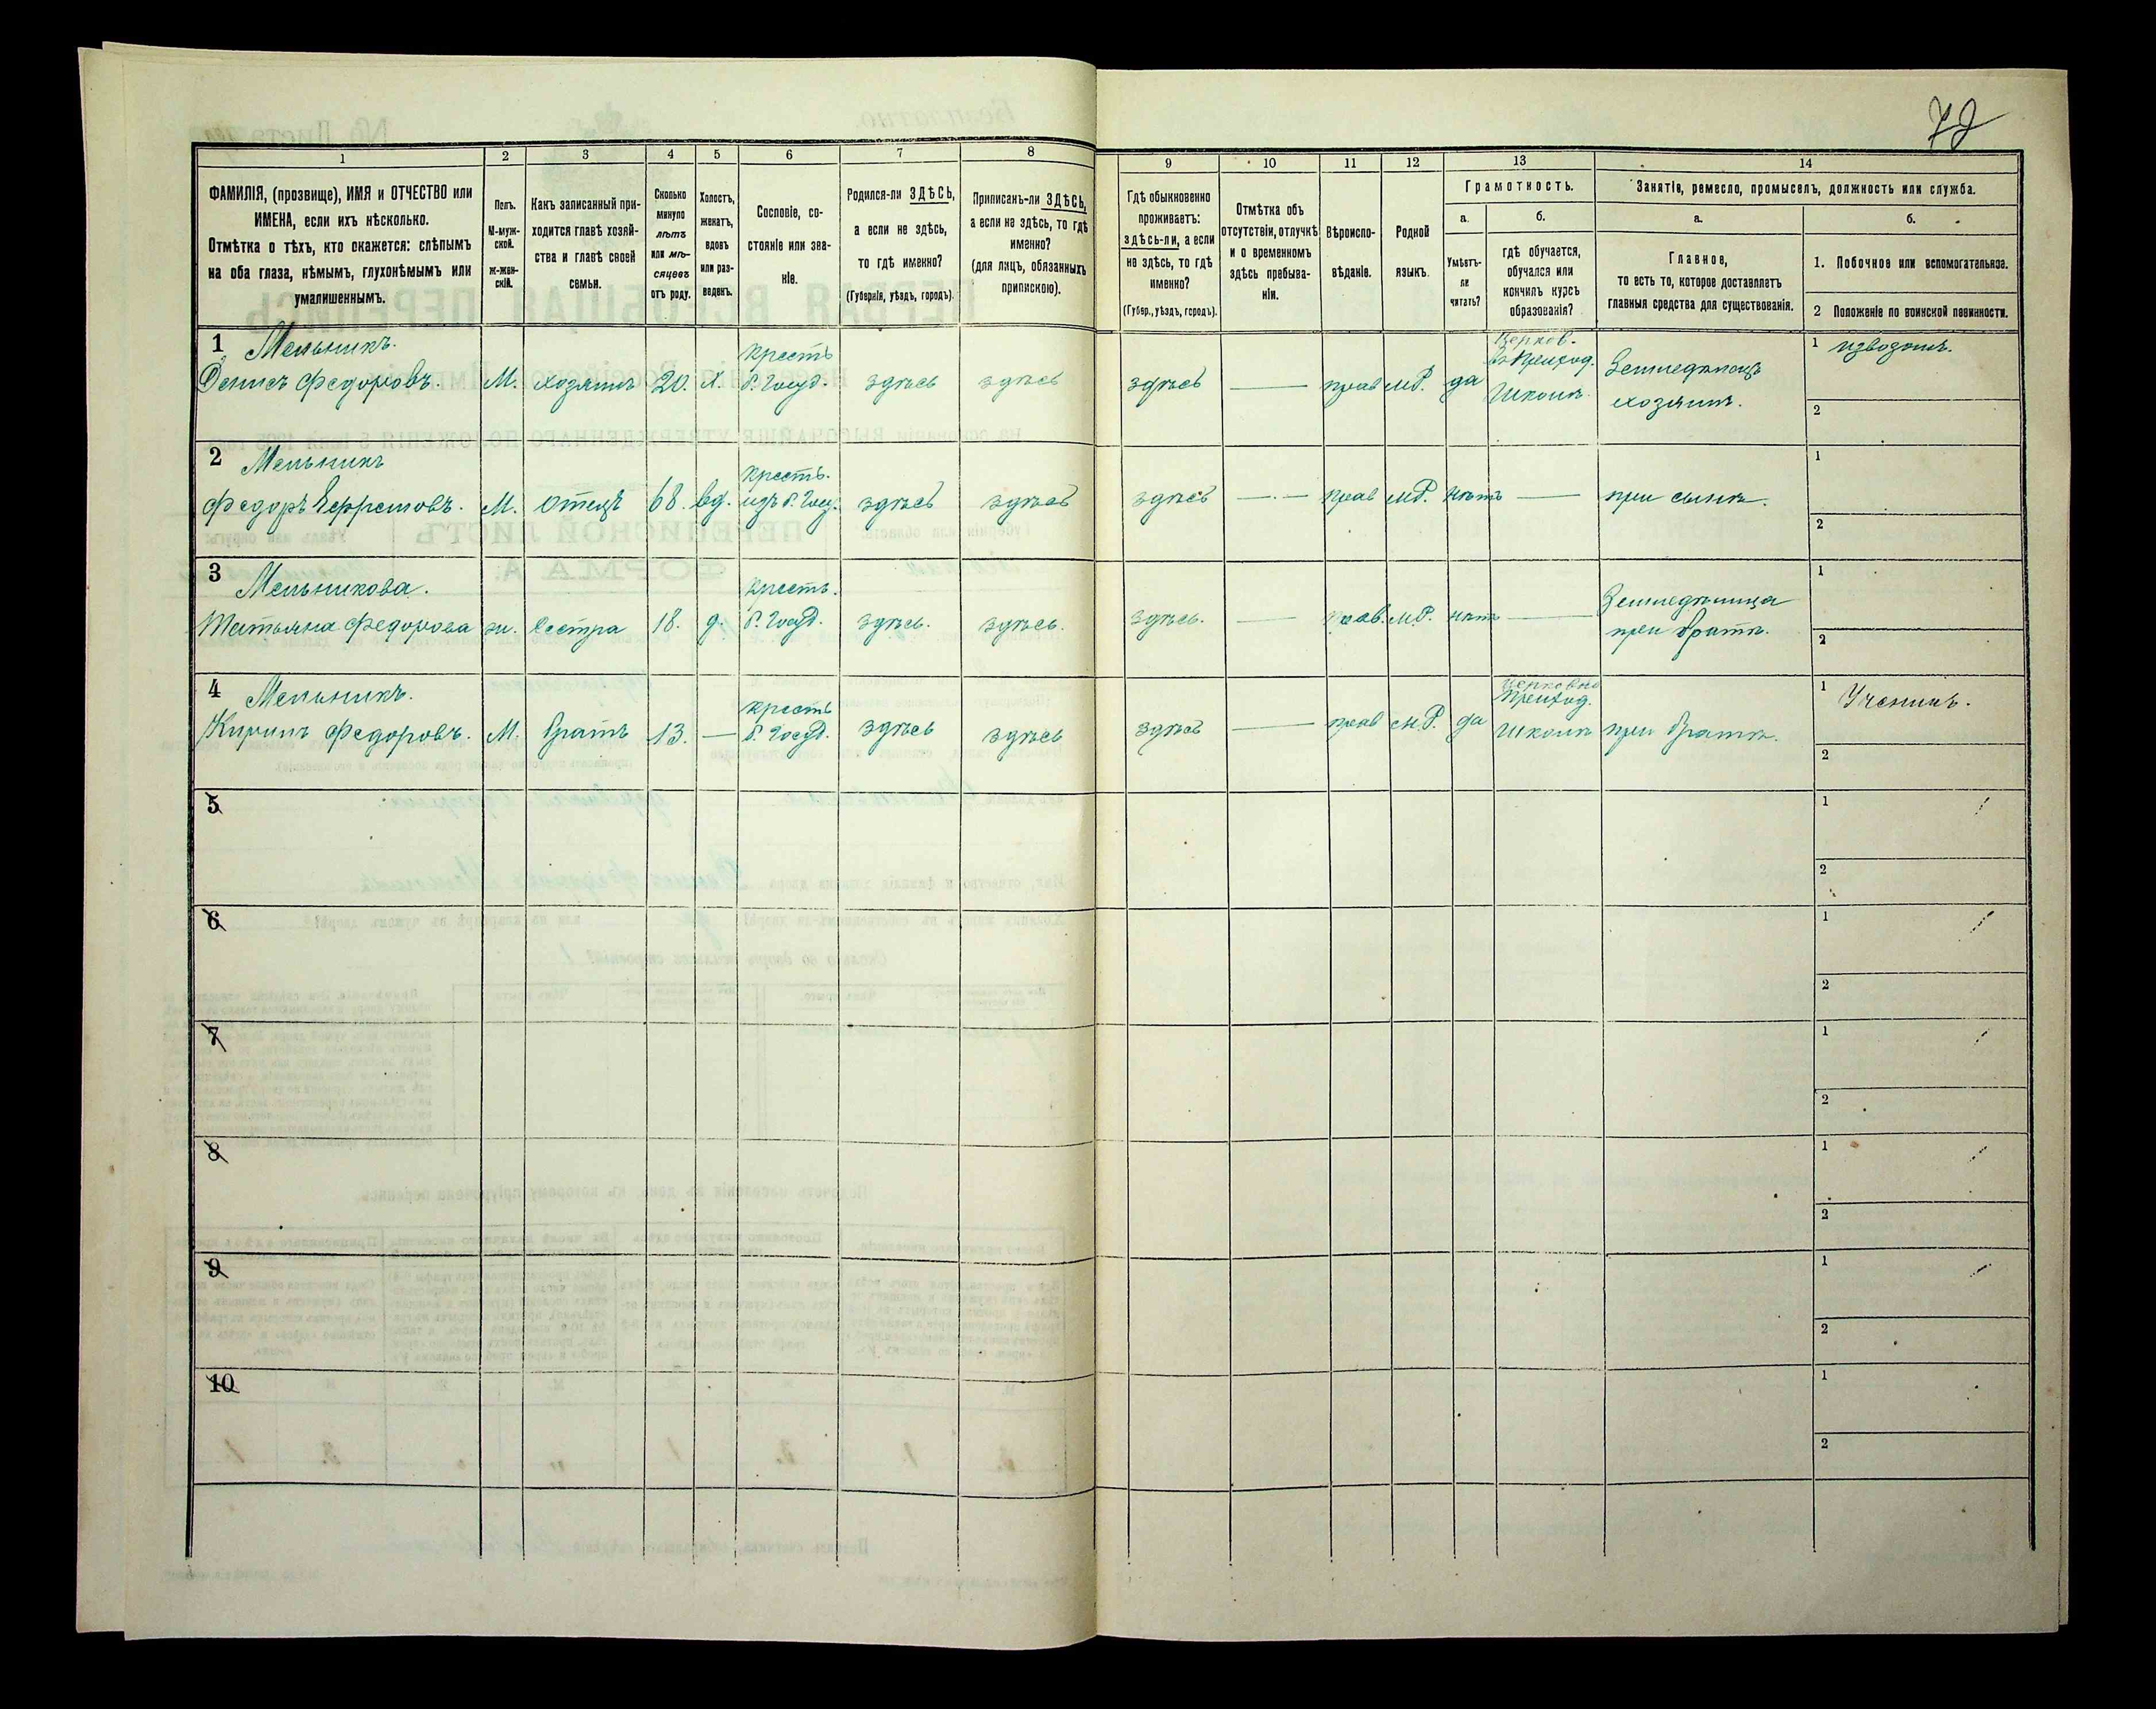 72
1
2
3
4
5
6
7
8
9
10
11
12
13
14
ФАМИЛІЯ, (прозвище), ИМЯ и ОТЧЕСТВО или
ИМЕНА, если ихъ нѣсколько.
Отмѣтка о тѣхъ, кто окажется: слѣпымъ
на оба глаза, нѣмымъ, глухонѣмымъ или
умалишеннымъ.
Полъ.
М-муж-
ской.
Ж-жен-
скій.
Какъ записанный при-
ходится главѣ хозяй-
ства и главѣ своей
семьи.
Сколько
минуло
лѣтъ
или мѣ-
сяцевъ
отъ роду.
Холостъ,
женатъ,
вдовъ
или раз-
веденъ.
Сословіе, со-
стояніе или зва-
ніе.
Родился-ли ЗДѢСЬ,
а если не здѣсь,
то гдѣ именно?
(Губернія, уѣздъ, городъ).
Приписанъ-ли ЗДѢСЬ,
а если не здѣсь, то гдѣ
именно?
(для лицъ, обязанныхъ
припискою).
Гдѣ обыкновенно
проживаетъ:
здѣсь-ли, а если
не здѣсь, то гдѣ
именно?
(Губер., уѣздъ, городъ).
Отмѣтка объ
отсутствіи, отлучкѣ
и о временномъ
здѣсь пребыва-
ніи.
Вѣроиспо-
вѣданіе.
Родной
языкъ.
Грамотность.
а.
б.
Умѣетъ-
ли
читать?
гдѣ обучается,
обучался или
кончилъ курсъ
образованія?
Занятіе, ремесло, промыселъ, должность или служба.
а.
б.
Главное,
то есть то, которое доставляетъ
главныя средства для существованія.
1. Побочное или вспомогательное.
2 Положеніе по воинской повинности.
1 Мельникъ.
Денисъ Федоровъ.
М.
хозяинъ
20.
Х.
крестъ
б. Госуд.
здѣсь
здѣсь
здѣсь
прав
мР.
да
Церков.
Приход.
Школѣ
Земледѣлецъ
хозяинъ.
1 извозомъ.
2
2 Мельникъ
Федоръ Ефремовъ.
М.
отецъ
68.
вд.
крестъ.
изъ б. Госу.
здѣсь
здѣсь
здѣсь
прав
мР.
нѣтъ
при сынѣ.
1
2
3 Мельникова.
Татьяна Федорова
ж.
сестра
18.
д.
крестъ.
б. Госуд.
здѣсь.
здѣсь.
здѣсь.
прав.
мР.
нѣтъ
Земледѣлица
при братѣ.
1
2
4 Мельникъ.
Кирилъ Федоровъ.
М.
братъ
13.
крестъ
б. Госуд.
здѣсь
здѣсь
здѣсь
прав
мР.
да
Церковно
Приход.
Школѣ
при братѣ.
1 Ученикъ.
2
5
1
2
6
1
2
7
1
2
8
1
2
9
1
2
10
1
2